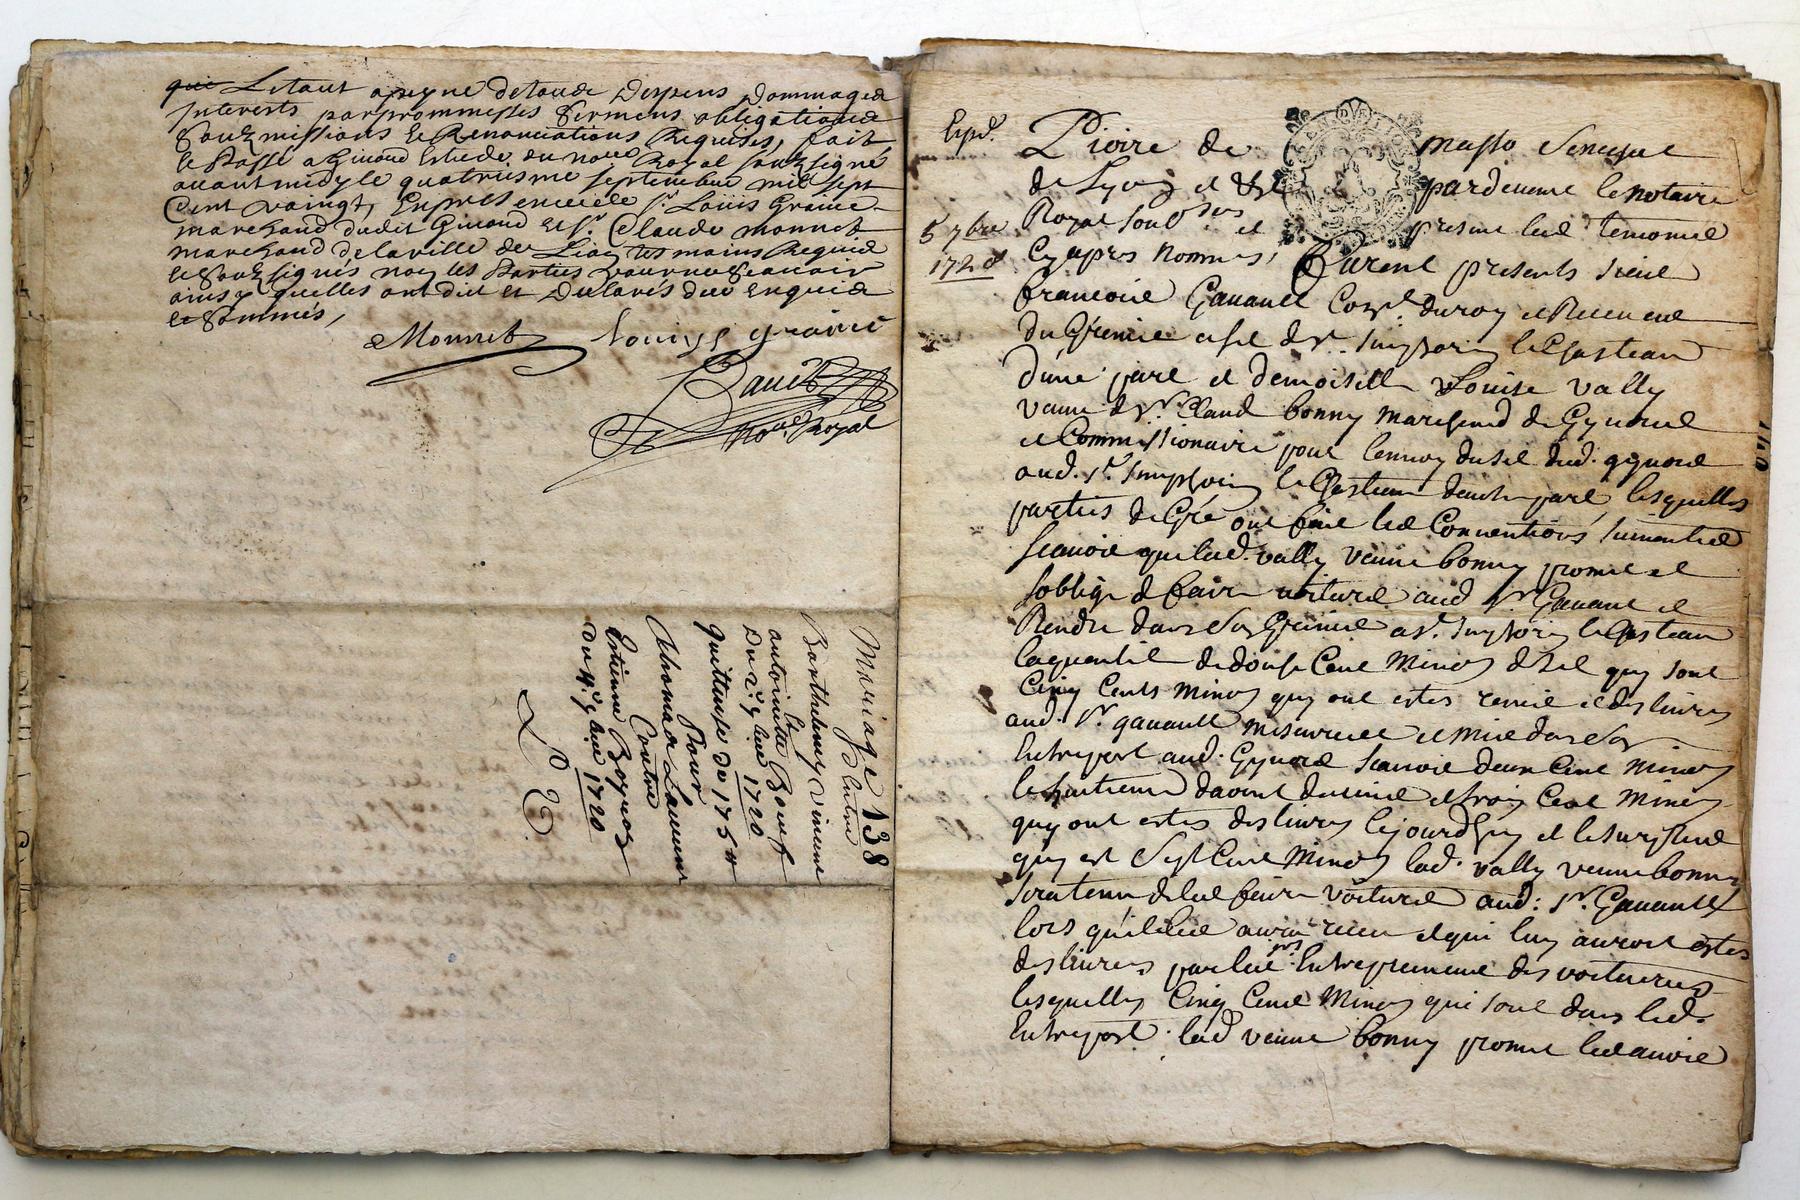 que Le tout a peyne de tous Despens Dommages
Interests par prommesses sermens obligations
soubmissions et Renonciations Requises, fait
et Passé a Givord Estude du no.re Royal soubzsigné
avant midy le quatriesme septembre mil sept
Cent vaingt, En presence de s.r Louis
marchand dudit Givord et s.r Claude monnet
marchand de la ville de Lion tesmoins Requis
et soubzsignés non les Parties pour ne scavoir
ainsy quelles ont dit et Declarés de ce Enquis
et sommés,
Monnet Louiys
no.re Royal
Mariage 138
Entre
Barthelemy vincent
Et
antoinette Boeuf
Du 2.e 7bre 1720
quittance de 175 #
Pour
Contre
Estienne
Du 4.e 7bre 1720
Expd.
5 7bre
1720
de
de Lyon et pardevant le notaire
Royal soub.né et present les temoins
Cy apres nommés, furent presents sieur
francois Gavault Con.er du roy et Receveur
du Grenier a sel de s.t Simphorien le Chasteau
dune part et demoiselle Louise vally
veuve de s.r Claude bonny marchand de Gyvord
et Commissionaire pour lenvoy du sel dud. gyvord
aud. s.t Simphorien le Chasteau dautre part, lesquelles
parties de Gré ont fait les Conventions suivantes
scavoir que lad. vally veuve bonny promet et
soblige de faire voiturer aud s.r Gavault et
Rendre dans son Grenier a s.t Simphorien le Chasteau
la quantité de douse Cent Minos de sel quy sont
Cinq Cents Minos quy ont estes remis et deslivres
aud. s.r gavault mesures et mis dans son
Entrepost aud. Gyvord scavoir deux Cent Minos
le huitieme daoust dernier et trois Cent Minos
quy ont estes deslivres lejourdhuy et le surplus
quy est Sept Cent Minos lad. vally veuve bonny
sera tenue de les faire voiturer aud: s.r Gavault
lors quil les aura receu et qui luy auront estes
deslivres par les s.rs Entrepreneurs des voitures
lesquelles Cinq Cent Minos qui sont dans led.
Entrepost lad veuve bonny promet les avoir